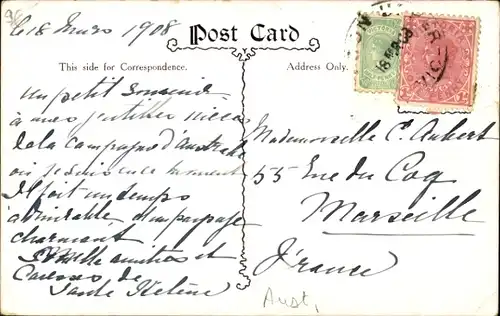 Le 18 Mars 1908
Post Card
This side for Correspondence.
Address Only.
VICTORIA
18 MR 08
VIC
un petit Souvenir
à mes gentilles nièces
de la campagne d'Australie
où je suis en ce moment
Il fait un temps
admirable, d'un paysage
charmant
Mille amitiés et
Caresses de
Tante Hélène
Mademoiselle C. Aubert
55 Rue du Coq
Marseille
France
Aust,